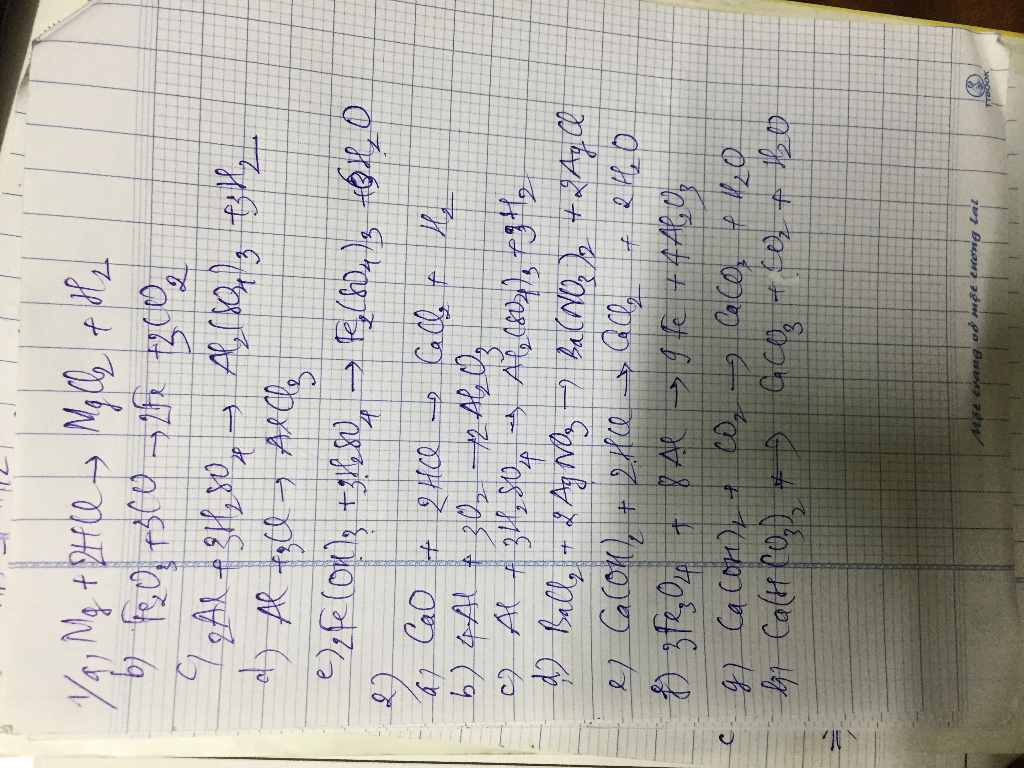 1/a, Mg + 2HCl → MgCl2 + H2
b) Fe2O3 + 3CO → 2Fe + 3CO2
c) 2Al + 3H2SO4 → Al2(SO4)3 + 3H2
d) Al + 3Cl → AlCl3
e) 2Fe(OH)3 + 3H2SO4 → Fe2(SO4)3 + 6H2O
2)
a) CaO + 2HCl → CaCl2 + H2
b) 4Al + 3O2 → 2Al2O3
c) Al + 3H2SO4 → Al2(SO4)3 + 3H2
d) BaCl2 + 2AgNO3 → Ba(NO3)2 + 2AgCl
e) Ca(OH)2 + 2HCl → CaCl2 + 2H2O
f) 3Fe3O4 + 8Al → 9Fe + 4Al2O3
g) Ca(OH)2 + CO2 → CaCO3 + H2O
h) Ca(HCO3)2 → CaCO3 + CO2 + H2O